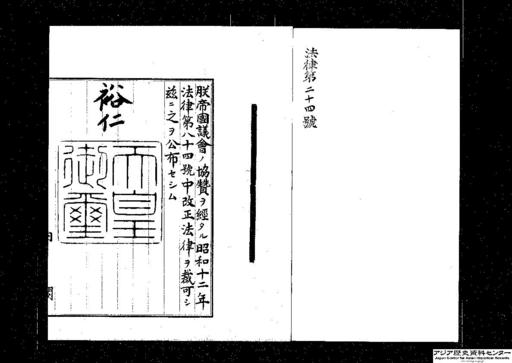 法律第二十四號
朕帝國議會ノ協贊ヲ經タル昭和十二年
法律第八十四號中改正法律ヲ裁可シ
茲ニ之ヲ公布セシム
裕仁
天皇
御璽
内閣
アジア歴史資料センター
Japan Center for Asian Historical Records